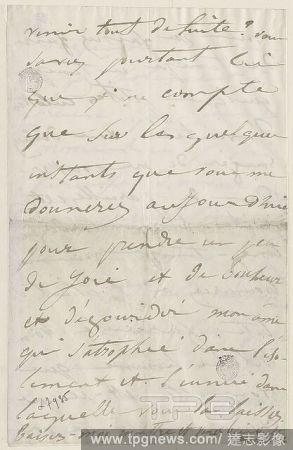 venir tout de suite? Vous
savez pourtant bien
que je ne compte
que sur les quelques
instants que vous me
donnerez aujourd'hui
pour prendre un peu
de joie et de bonheur
et dégourdir mon âme
qui s'atrophie dans l'iso-
lement et l'ennui dans
laquelle vous la laissez.
baisez-moi
TPG
www.tpgnews.com / 達志影像